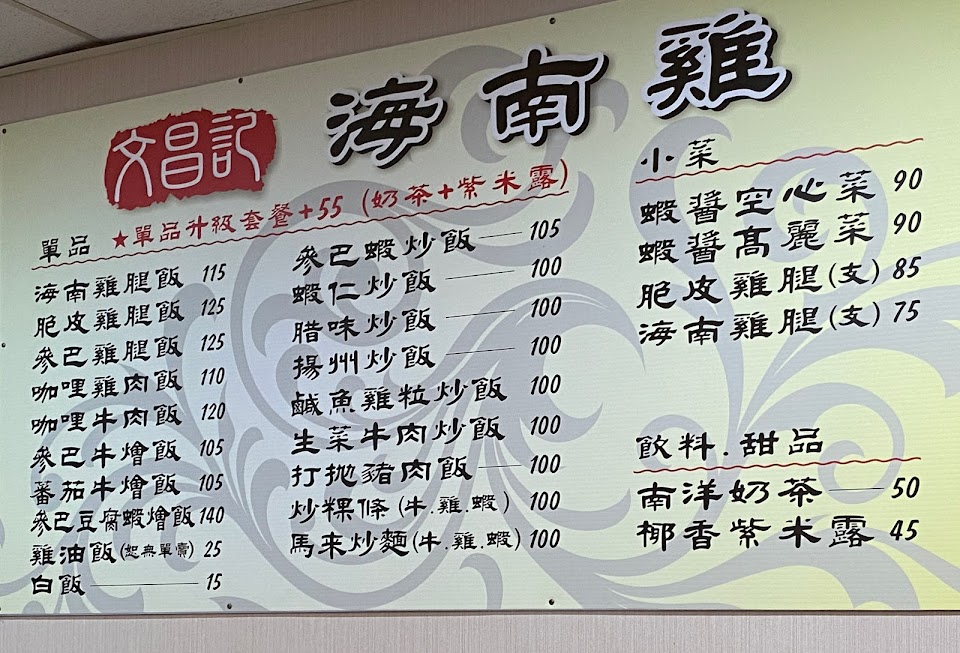 文昌記 海南雞
單品 ★單品升級套餐+55 (奶茶+紫米露)
海南雞腿飯 115
脆皮雞腿飯 125
參巴雞腿飯 125
咖哩雞肉飯 110
咖哩牛肉飯 120
參巴牛燴飯 105
蕃茄牛燴飯 105
參巴豆腐蝦燴飯 140
雞油飯(恕無單賣) 25
白飯 15
參巴蝦炒飯 105
蝦仁炒飯 100
腊味炒飯 100
揚州炒飯 100
鹹魚雞粒炒飯 100
生菜牛肉炒飯 100
打拋豬肉飯 100
炒粿條(牛.雞.蝦) 100
馬來炒麵(牛.雞.蝦) 100
小菜
蝦醬空心菜 90
蝦醬高麗菜 90
脆皮雞腿(支) 85
海南雞腿(支) 75
飲料.甜品
南洋奶茶 50
椰香紫米露 45